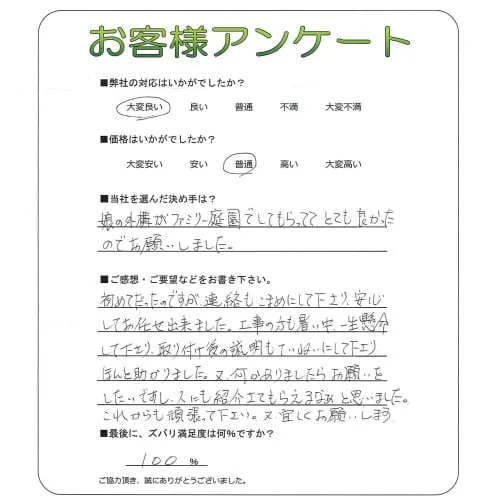 お客様アンケート
■弊社の対応はいかがでしたか?
大変良い 良い 普通 不満 大変不満
■価格はいかがでしたか?
大変安い 安い 普通 高い 大変高い
■当社を選んだ決め手は?
娘の外構がファミリー庭園でしてもらってて とても良かった
のでお願いしました。
■ご感想・ご要望などをお書き下さい。
初めてだったのですが、連絡もこまめにして下さり、安心
してお任せ出来ました。工事の方も暑い中、一生懸命
して下さり、取り付け後の説明もていねいにして下さり、
ほんと助かりました。又、何かありましたらお願いを
したいですし、人にも紹介してもらえるなぁと思いました。
これからも頑張って下さい。又、宜しくお願いします。
■最後に、ズバリ満足度は何%ですか?
100 %
ご協力頂き、誠にありがとうございました。